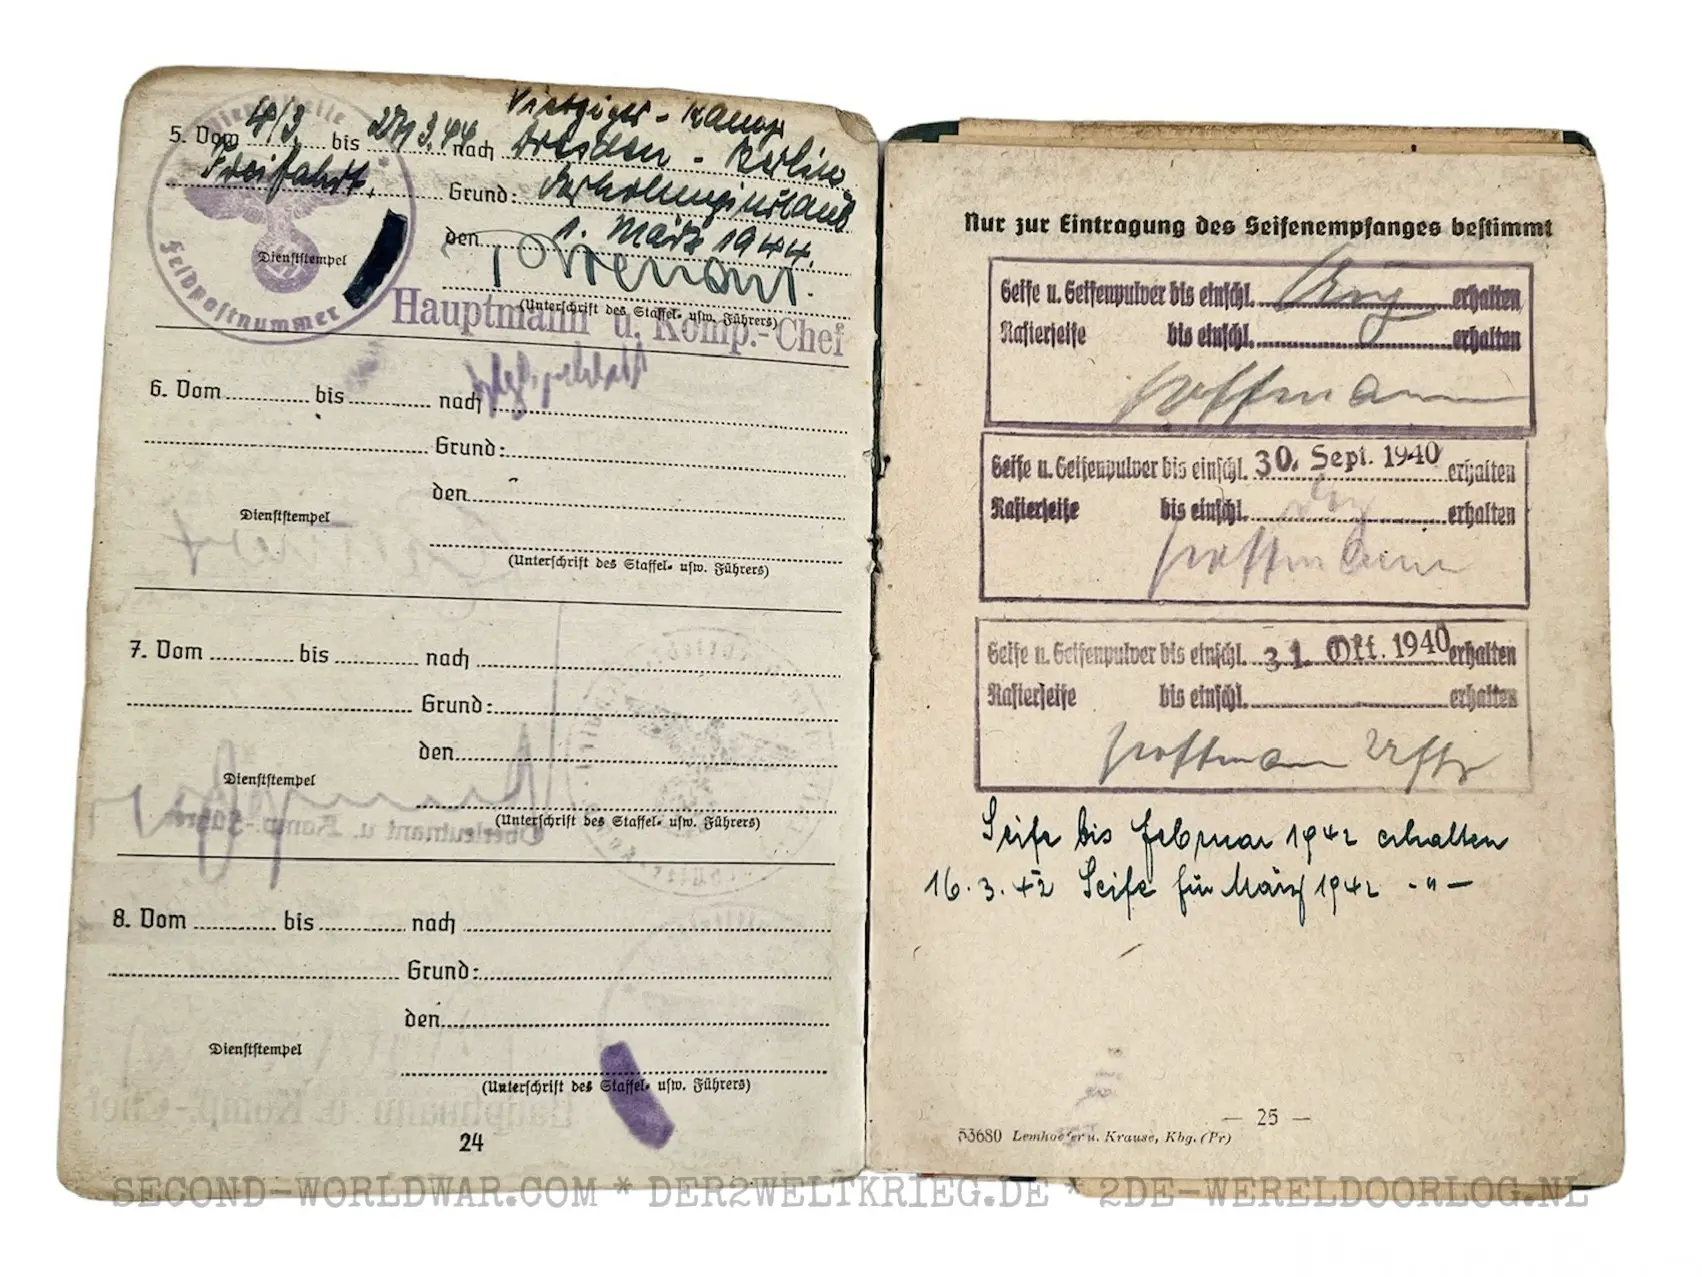 Dienststelle
Feldpostnummer
5. Vom 4/3. bis 27/3.44 nach Dresden - Berlin
Freifahrt. Grund: Erholungsurlaub
den 1. März 1944.
Dienststempel
(Unterschrift des Staffel- usw. Führers)
Hauptmann u. Komp.-Chef
6. Vom bis nach
Grund:
den
Dienststempel
(Unterschrift des Staffel- usw. Führers)
7. Vom bis nach
Grund:
den
Dienststempel
(Unterschrift des Staffel- usw. Führers)
Oberleutnant u. Komp.-Führer
8. Vom bis nach
Grund:
den
Dienststempel
(Unterschrift des Staffel- usw. Führers)
Hauptmann u. Komp.-Chef
24
Nur zur Eintragung des Seifenempfanges bestimmt
Seife u. Seifenpulver bis einschl. erhalten
Rasierseife bis einschl. erhalten
Hoffmann
Seife u. Seifenpulver bis einschl. 30. Sept. 1940 erhalten
Rasierseife bis einschl. erhalten
Hoffmann
Seife u. Seifenpulver bis einschl. 31. Okt. 1940 erhalten
Rasierseife bis einschl. erhalten
Hoffmann Uffz
Seife bis Februar 1942 erhalten
16.3.42 Seife für März 1942 - " -
— 25 —
53680 Lemhoefer u. Krause, Kbg. (Pr)
SECOND-WORLDWAR.COM * DER2WELTKRIEG.DE * 2DE-WERELDOORLOG.NL